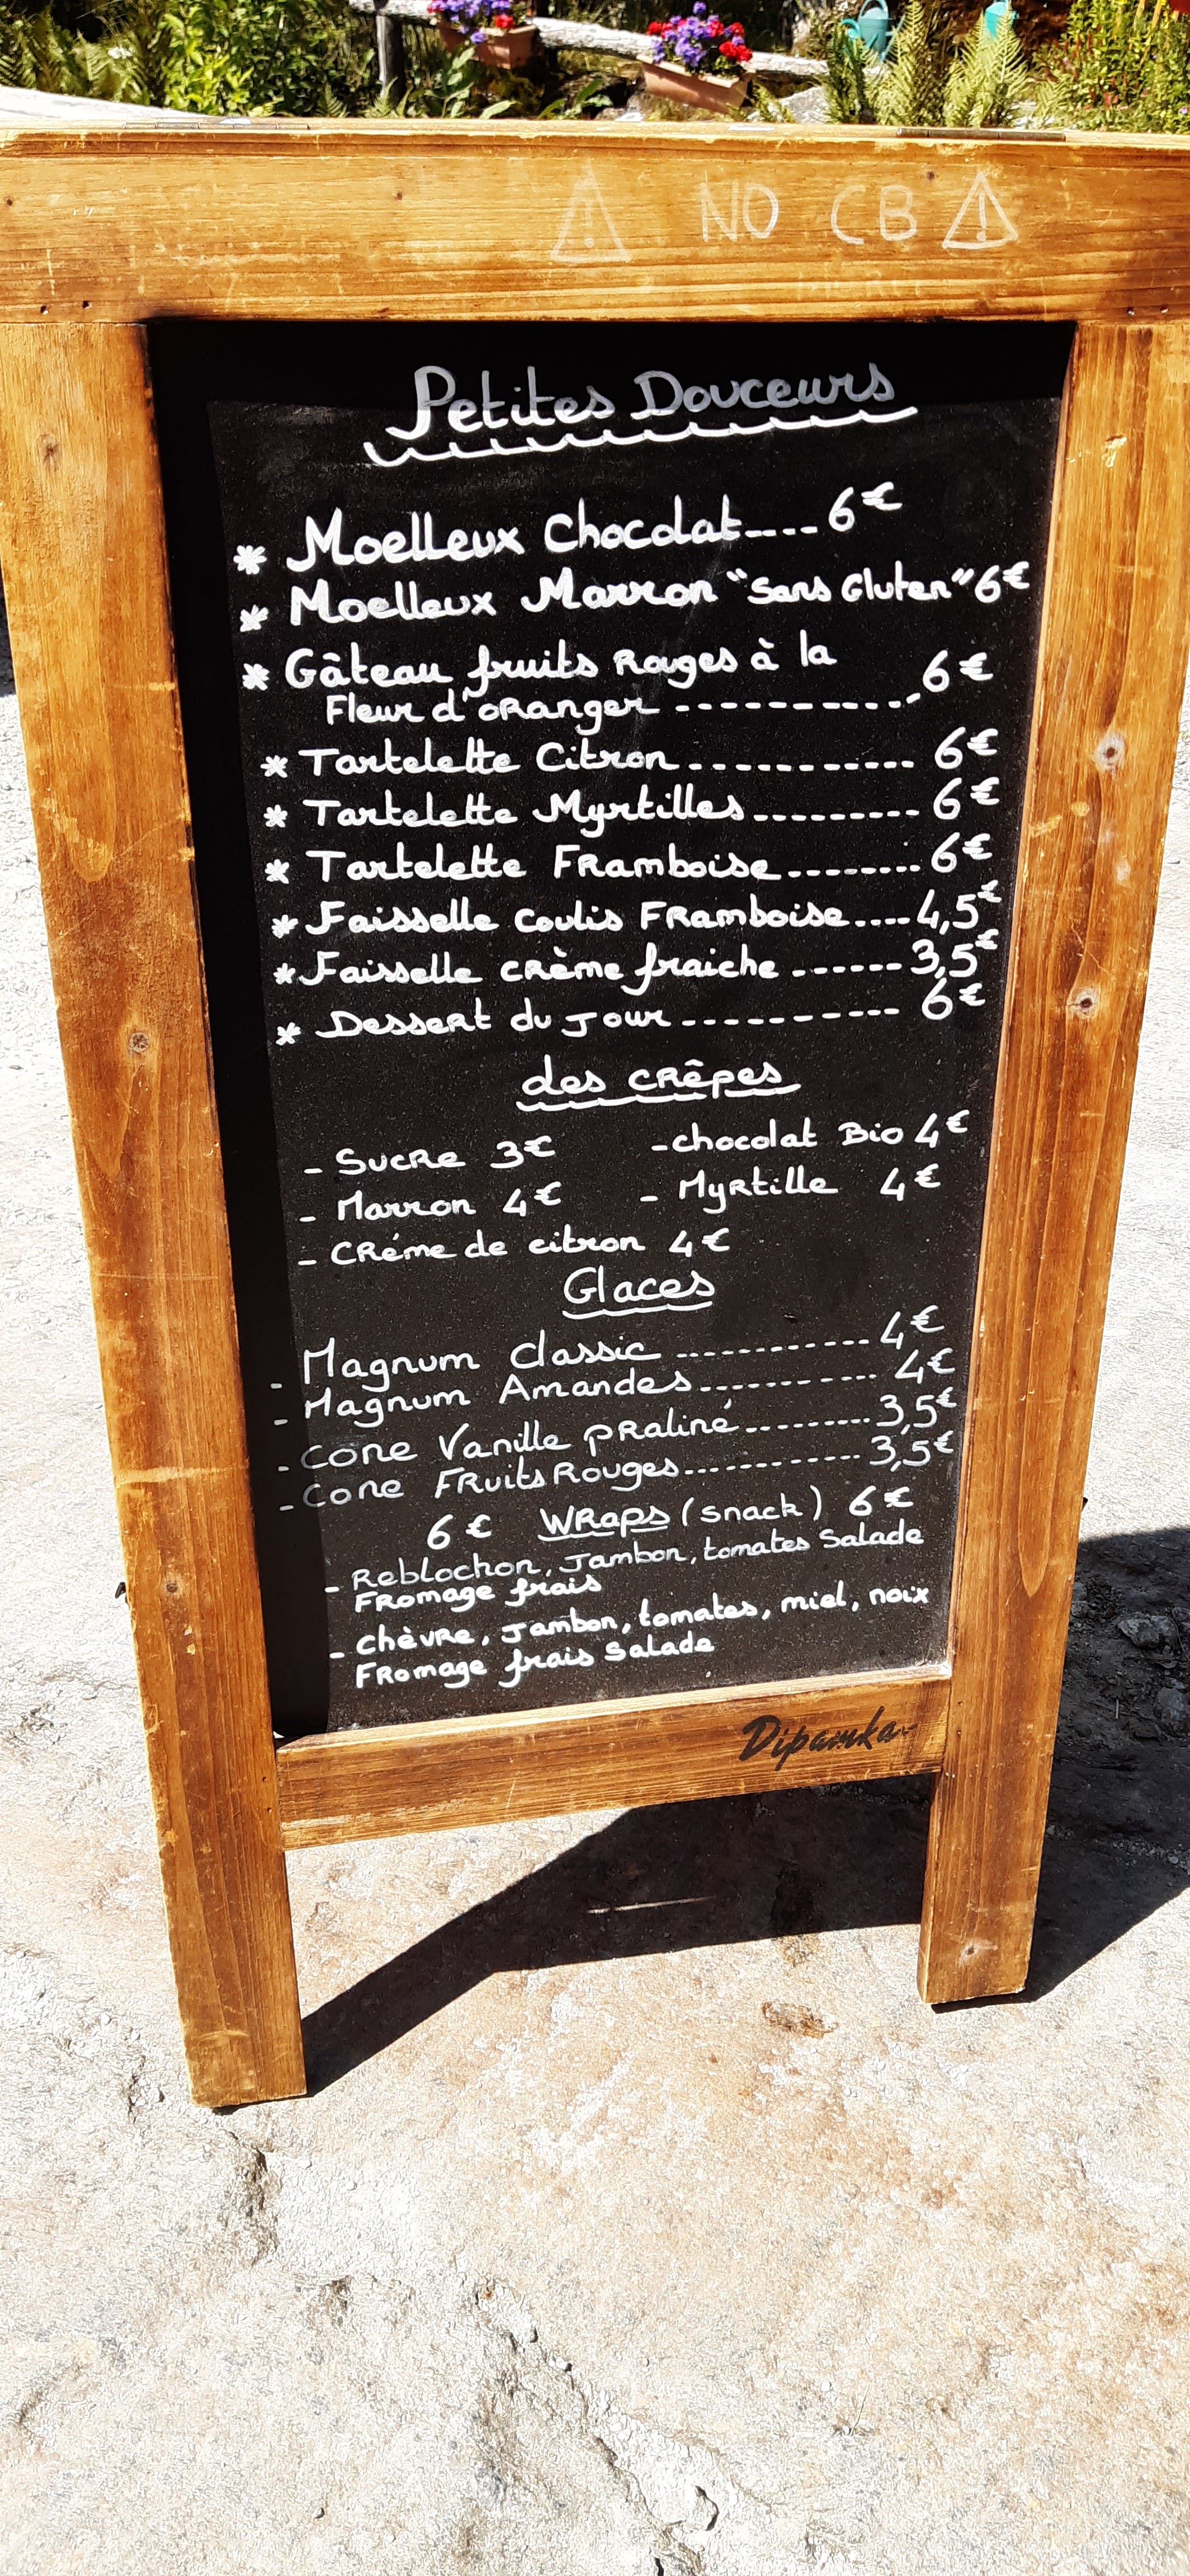 ⚠ NO CB ⚠
Petites Douceurs
* Moelleux Chocolat---- 6€
* Moelleux Marron "Sans Gluten" 6€
* Gâteau fruits Rouges à la
Fleur d'oranger ----------- 6€
* Tartelette Citron----------- 6€
* Tartelette Myrtilles--------- 6€
* Tartelette Framboise-------- 6€
* Faisselle coulis Framboise---- 4,5€
* Faisselle crème fraiche ------ 3,5€
* Dessert du Jour----------- 6€
des crêpes
- Sucre 3€ - chocolat Bio 4€
- Marron 4€ - Myrtille 4€
- Créme de citron 4€
Glaces
- Magnum classic ------------ 4€
- Magnum Amandes----------- 4€
- Cone Vanille praliné--------- 3,5€
- Cone Fruits Rouges------------ 3,5€
6€ Wraps (snack) 6€
- Reblochon, Jambon, tomates Salade
Fromage frais
- chèvre, Jambon, tomates, miel, noix
Fromage frais Salade
Dipamka